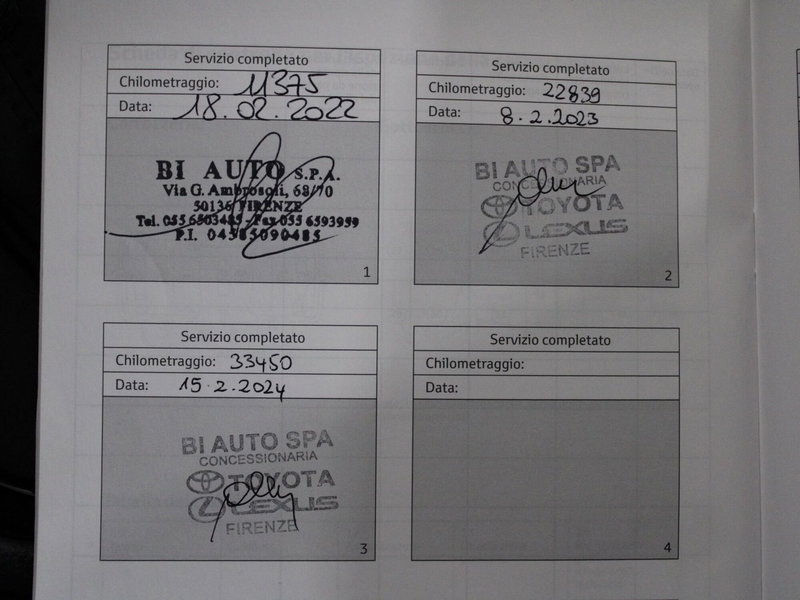 Servizio completato
Chilometraggio: 11375
Data: 18.02.2022
BI AUTO S.P.A.
Via G. Ambrosoli, 68/70
50136 FIRENZE
Tel. 055 6503485 - Fax 055 6593959
P.I. 04585090485
1
Servizio completato
Chilometraggio: 22839
Data: 8.2.2023
BI AUTO SPA
CONCESSIONARIA
TOYOTA
LEXUS
FIRENZE
2
Servizio completato
Chilometraggio: 33450
Data: 15.2.2024
BI AUTO SPA
CONCESSIONARIA
TOYOTA
LEXUS
FIRENZE
3
Servizio completato
Chilometraggio:
Data:
4